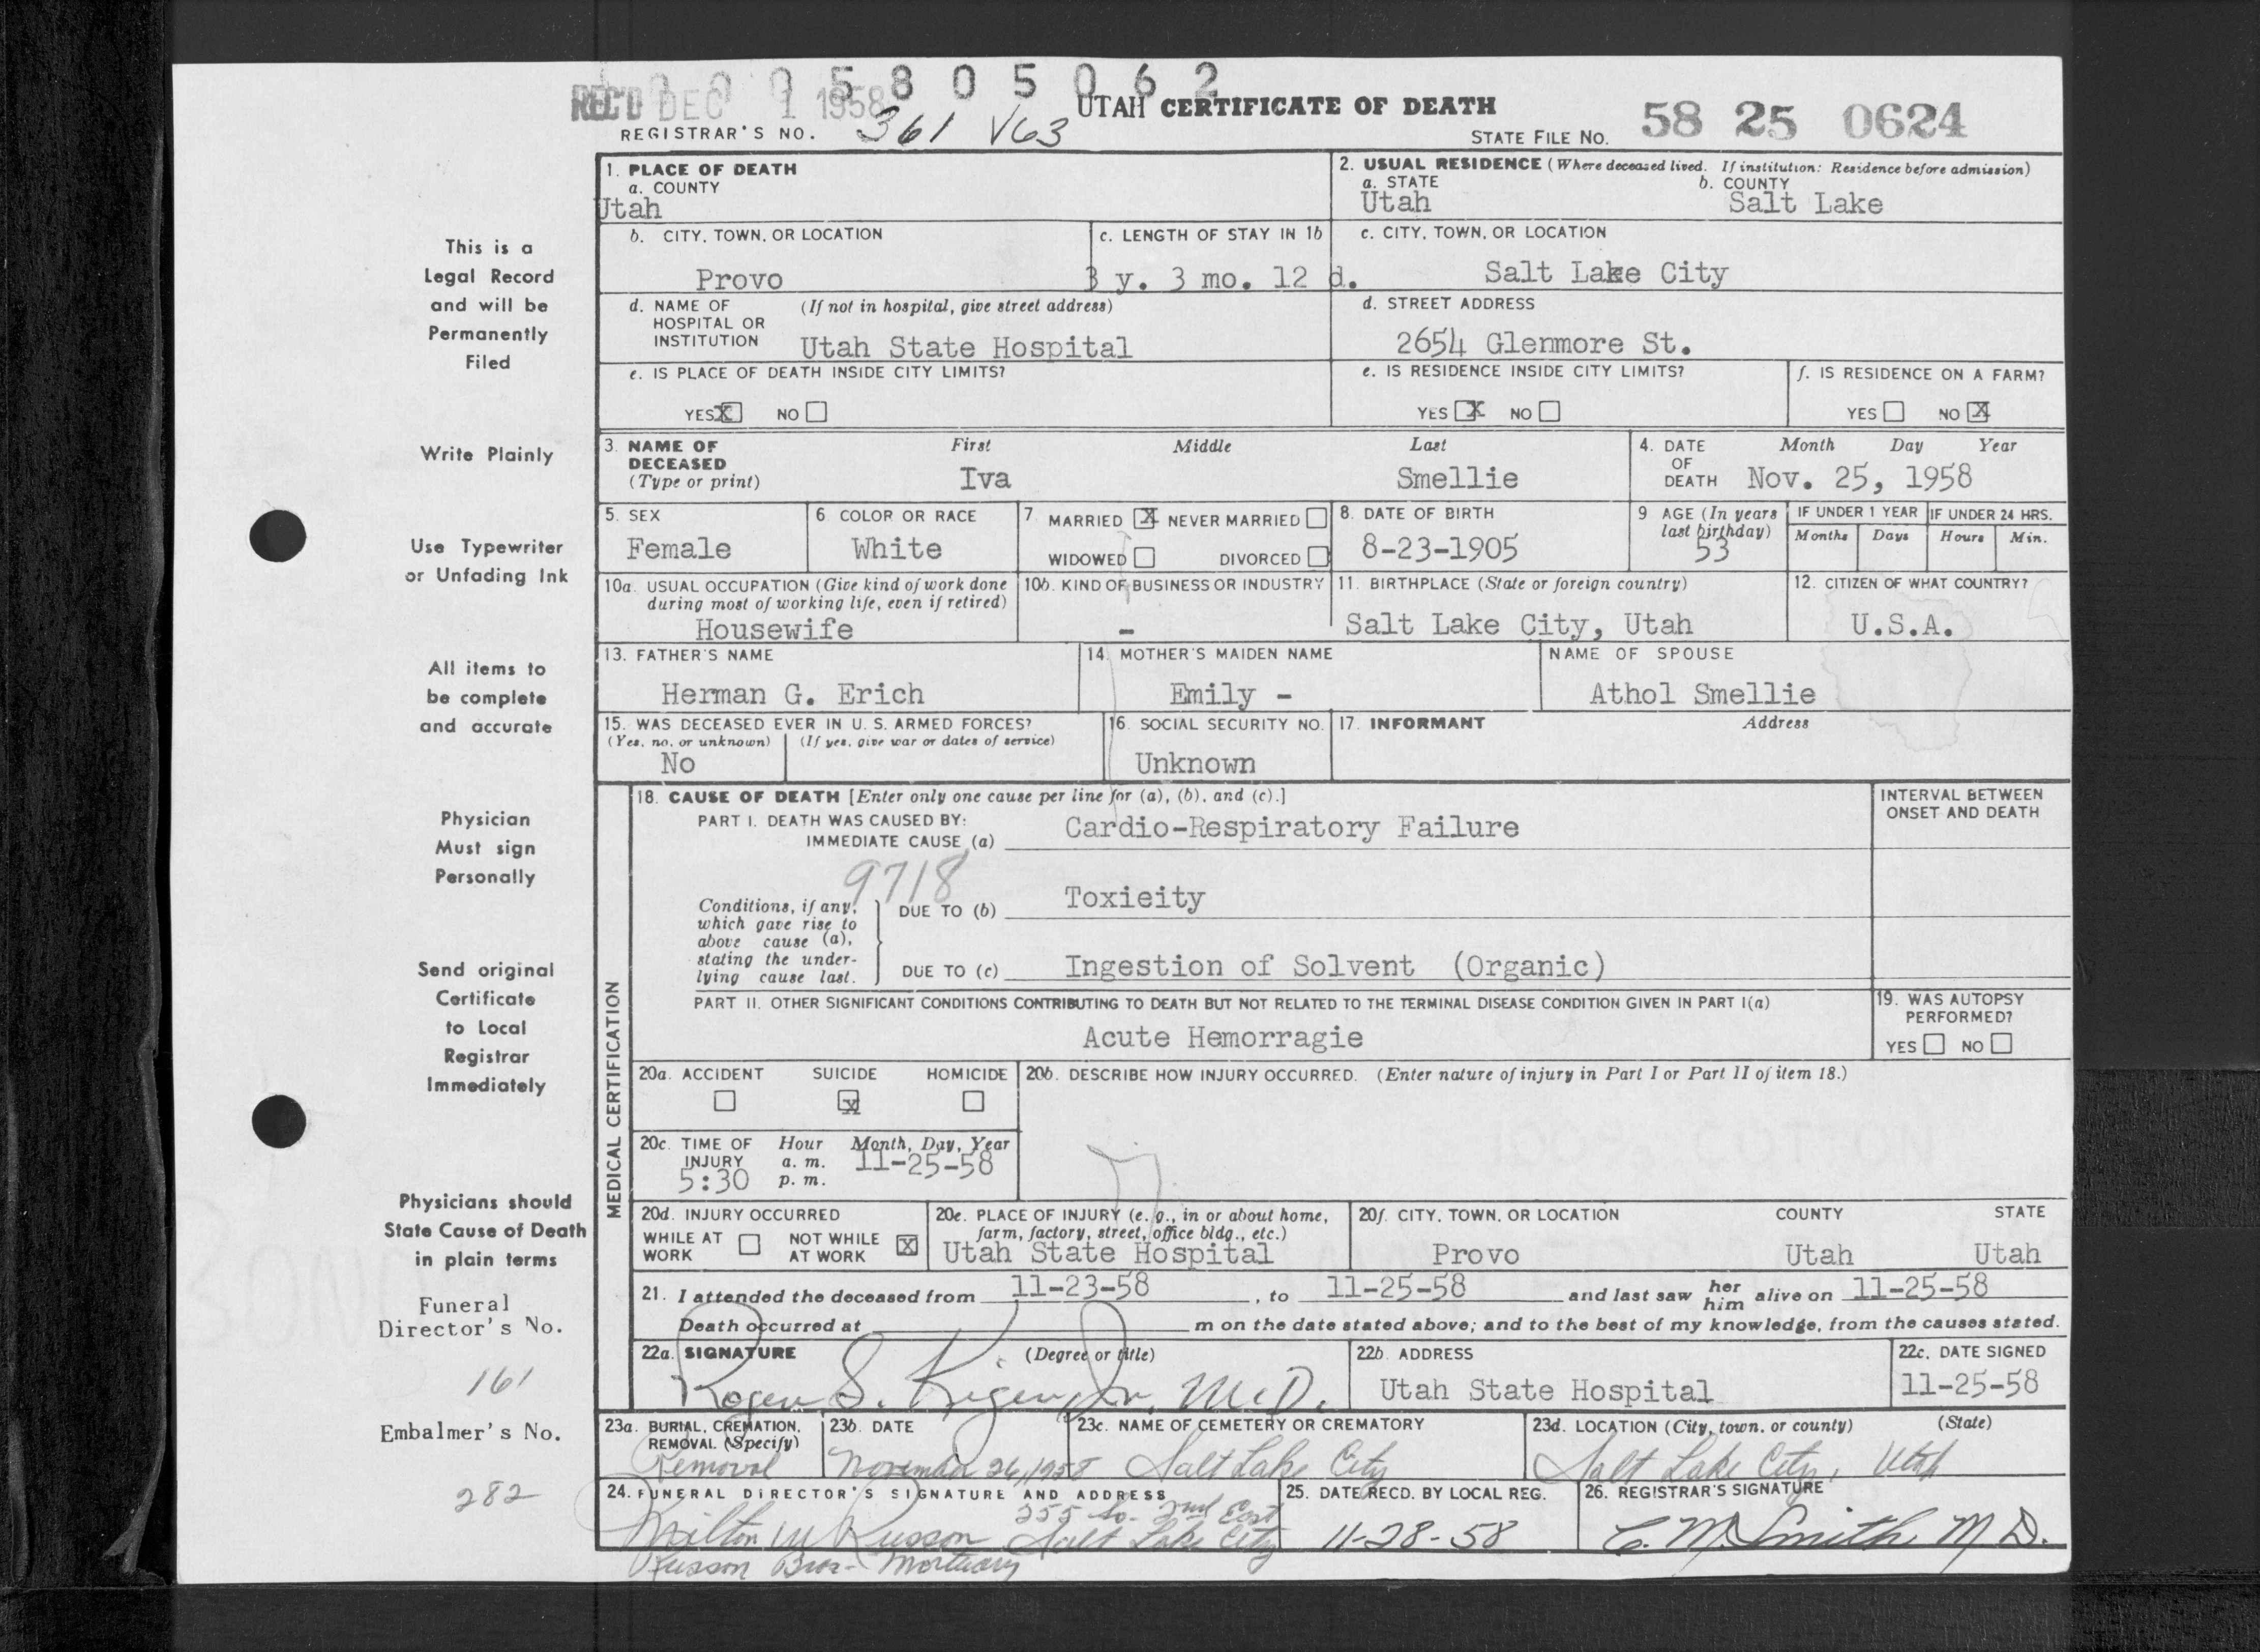 0 0 0 5 8 0 5 0 6 2
REC'D DEC 1 1958
UTAH CERTIFICATE OF DEATH
REGISTRAR'S NO. 361 V63
STATE FILE NO. 58 25 0624
This is a
Legal Record
and will be
Permanently
Filed
Write Plainly
Use Typewriter
or Unfading Ink
All items to
be complete
and accurate
Physician
Must sign
Personally
Send original
Certificate
to Local
Registrar
Immediately
Physicians should
State Cause of Death
in plain terms
Funeral
Director's No.
161
Embalmer's No.
282
1. PLACE OF DEATH
a. COUNTY
Utah
2. USUAL RESIDENCE (Where deceased lived. If institution: Residence before admission)
a. STATE b. COUNTY
Utah Salt Lake
b. CITY, TOWN, OR LOCATION
Provo
c. LENGTH OF STAY IN 1b
3 y. 3 mo. 12 d.
c. CITY, TOWN, OR LOCATION
Salt Lake City
d. NAME OF (If not in hospital, give street address)
HOSPITAL OR
INSTITUTION Utah State Hospital
d. STREET ADDRESS
2654 Glenmore St.
e. IS PLACE OF DEATH INSIDE CITY LIMITS?
YES X NO
e. IS RESIDENCE INSIDE CITY LIMITS?
YES X NO
f. IS RESIDENCE ON A FARM?
YES NO X
3. NAME OF First Middle Last
DECEASED
(Type or print) Iva Smellie
4. DATE Month Day Year
OF
DEATH Nov. 25, 1958
5. SEX
Female
6. COLOR OR RACE
White
7. MARRIED X NEVER MARRIED
WIDOWED DIVORCED
8. DATE OF BIRTH
8-23-1905
9 AGE (In years
last birthday)
53
IF UNDER 1 YEAR IF UNDER 24 HRS.
Months Days Hours Min.
10a. USUAL OCCUPATION (Give kind of work done
during most of working life, even if retired)
Housewife
10b. KIND OF BUSINESS OR INDUSTRY
-
11. BIRTHPLACE (State or foreign country)
Salt Lake City, Utah
12. CITIZEN OF WHAT COUNTRY?
U.S.A.
13. FATHER'S NAME
Herman G. Erich
14. MOTHER'S MAIDEN NAME
Emily -
NAME OF SPOUSE
Athol Smellie
15. WAS DECEASED EVER IN U. S. ARMED FORCES?
(Yes, no, or unknown) (If yes, give war or dates of service)
No
16. SOCIAL SECURITY NO.
Unknown
17. INFORMANT Address
MEDICAL CERTIFICATION
18. CAUSE OF DEATH [Enter only one cause per line for (a), (b), and (c).]
INTERVAL BETWEEN
ONSET AND DEATH
PART I. DEATH WAS CAUSED BY:
IMMEDIATE CAUSE (a) Cardio-Respiratory Failure
9718
Conditions, if any,
which gave rise to
above cause (a),
stating the under-
lying cause last.
DUE TO (b) Toxieity
DUE TO (c) Ingestion of Solvent (Organic)
PART II. OTHER SIGNIFICANT CONDITIONS CONTRIBUTING TO DEATH BUT NOT RELATED TO THE TERMINAL DISEASE CONDITION GIVEN IN PART I(a)
Acute Hemorragie
19. WAS AUTOPSY
PERFORMED?
YES NO
20a. ACCIDENT SUICIDE HOMICIDE
X
20b. DESCRIBE HOW INJURY OCCURRED. (Enter nature of injury in Part I or Part II of item 18.)
20c. TIME OF Hour Month, Day, Year
INJURY a. m. 11-25-58
5:30 p. m.
20d. INJURY OCCURRED
WHILE AT NOT WHILE X
WORK AT WORK
20e. PLACE OF INJURY (e. g., in or about home,
farm, factory, street, office bldg., etc.)
Utah State Hospital
20f. CITY, TOWN, OR LOCATION COUNTY STATE
Provo Utah Utah
21. I attended the deceased from 11-23-58, to 11-25-58 and last saw her him alive on 11-25-58
Death occurred at m on the date stated above; and to the best of my knowledge, from the causes stated.
22a. SIGNATURE (Degree or title)
Roger S. Jr. M.D.
22b. ADDRESS
Utah State Hospital
22c. DATE SIGNED
11-25-58
23a. BURIAL, CREMATION,
REMOVAL (Specify)
Removal
23b. DATE
November 26, 1958
23c. NAME OF CEMETERY OR CREMATORY
Salt Lake City
23d. LOCATION (City, town, or county) (State)
Salt Lake City, Utah
24. FUNERAL DIRECTOR'S SIGNATURE AND ADDRESS
255 So. 2nd East
Milton W Russon Salt Lake City
Russon Bros. Mortuary
25. DATE RECD. BY LOCAL REG.
11-28-58
26. REGISTRAR'S SIGNATURE
C. M. Smith, M D.